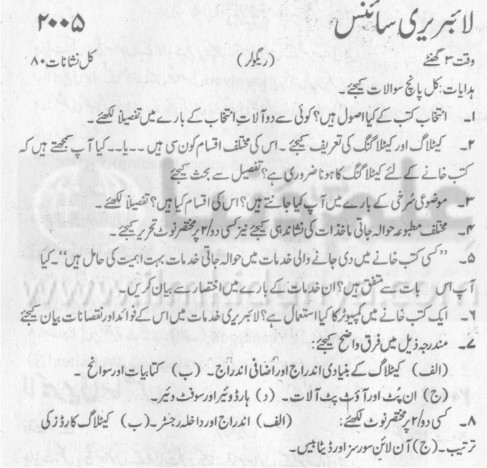 لائبریری سائنس ۲۰۰۵
وقت ۳ گھنٹے (ریگولر) کل نشانات ۸۰
ہدایات: کل پانچ سوالات کیجئے۔
۱۔ انتخاب کتب کے کیا اصول ہیں؟ کوئی سے دو آلات انتخاب کے بارے میں تفصیلاً لکھئے۔
۲۔ کیٹلاگ اور کیٹلاگنگ کی تعریف کیجئے ۔ اس کی مختلف اقسام کون سی ہیں ۔۔ یا۔۔ کیا آپ سمجھتے ہیں کہ
کتب خانے کے لئے کیٹلاگنگ کا ہونا ضروری ہے؟ تفصیل سے بحث کیجئے
۳۔ موضوعی سُرخی کے بارے میں آپ کیا جانتے ہیں؟ اس کی اقسام کیا ہیں؟ تفصیلاً لکھئے۔
۴۔ مختلف مطبوعہ حوالہ جاتی ماخذات کی نشاندہی کیجئے نیز کسی دو/۲ پر مختصر نوٹ تحریر کیجئے۔
۵۔ ”کسی کتب خانے میں دی جانے والی خدمات میں حوالہ جاتی خدمات بہت اہمیت کی حامل ہیں“۔ کیا
آپ اس بات سے متفق ہیں؟ ان خدمات کے بارے میں اختصار سے بیان کریں۔
۶۔ ایک کتب خانے میں کمپیوٹر کا کیا استعمال ہے؟ لائبریری خدمات میں اس کے فوائد اور نقصانات بیان کیجئے
۷۔ مندرجہ ذیل میں فرق واضح کیجئے:
(الف) کیٹلاگ کے بنیادی اندراج اور اضافی اندراج۔ (ب) کتابیات اور سوانح ۔
(ج) ان پُٹ اور آؤٹ پٹ آلات۔ (د) ہارڈ ویئر اور سوفٹ ویئر۔
۸۔ کسی دو/۲ پر مختصر نوٹ لکھئے: (الف) اندراج اور داخلہ رجسٹر۔ (ب) کیٹلاگ کارڈز کی
ترتیب۔ (ج) آن لائن سورسز اور ڈیٹا بیس۔